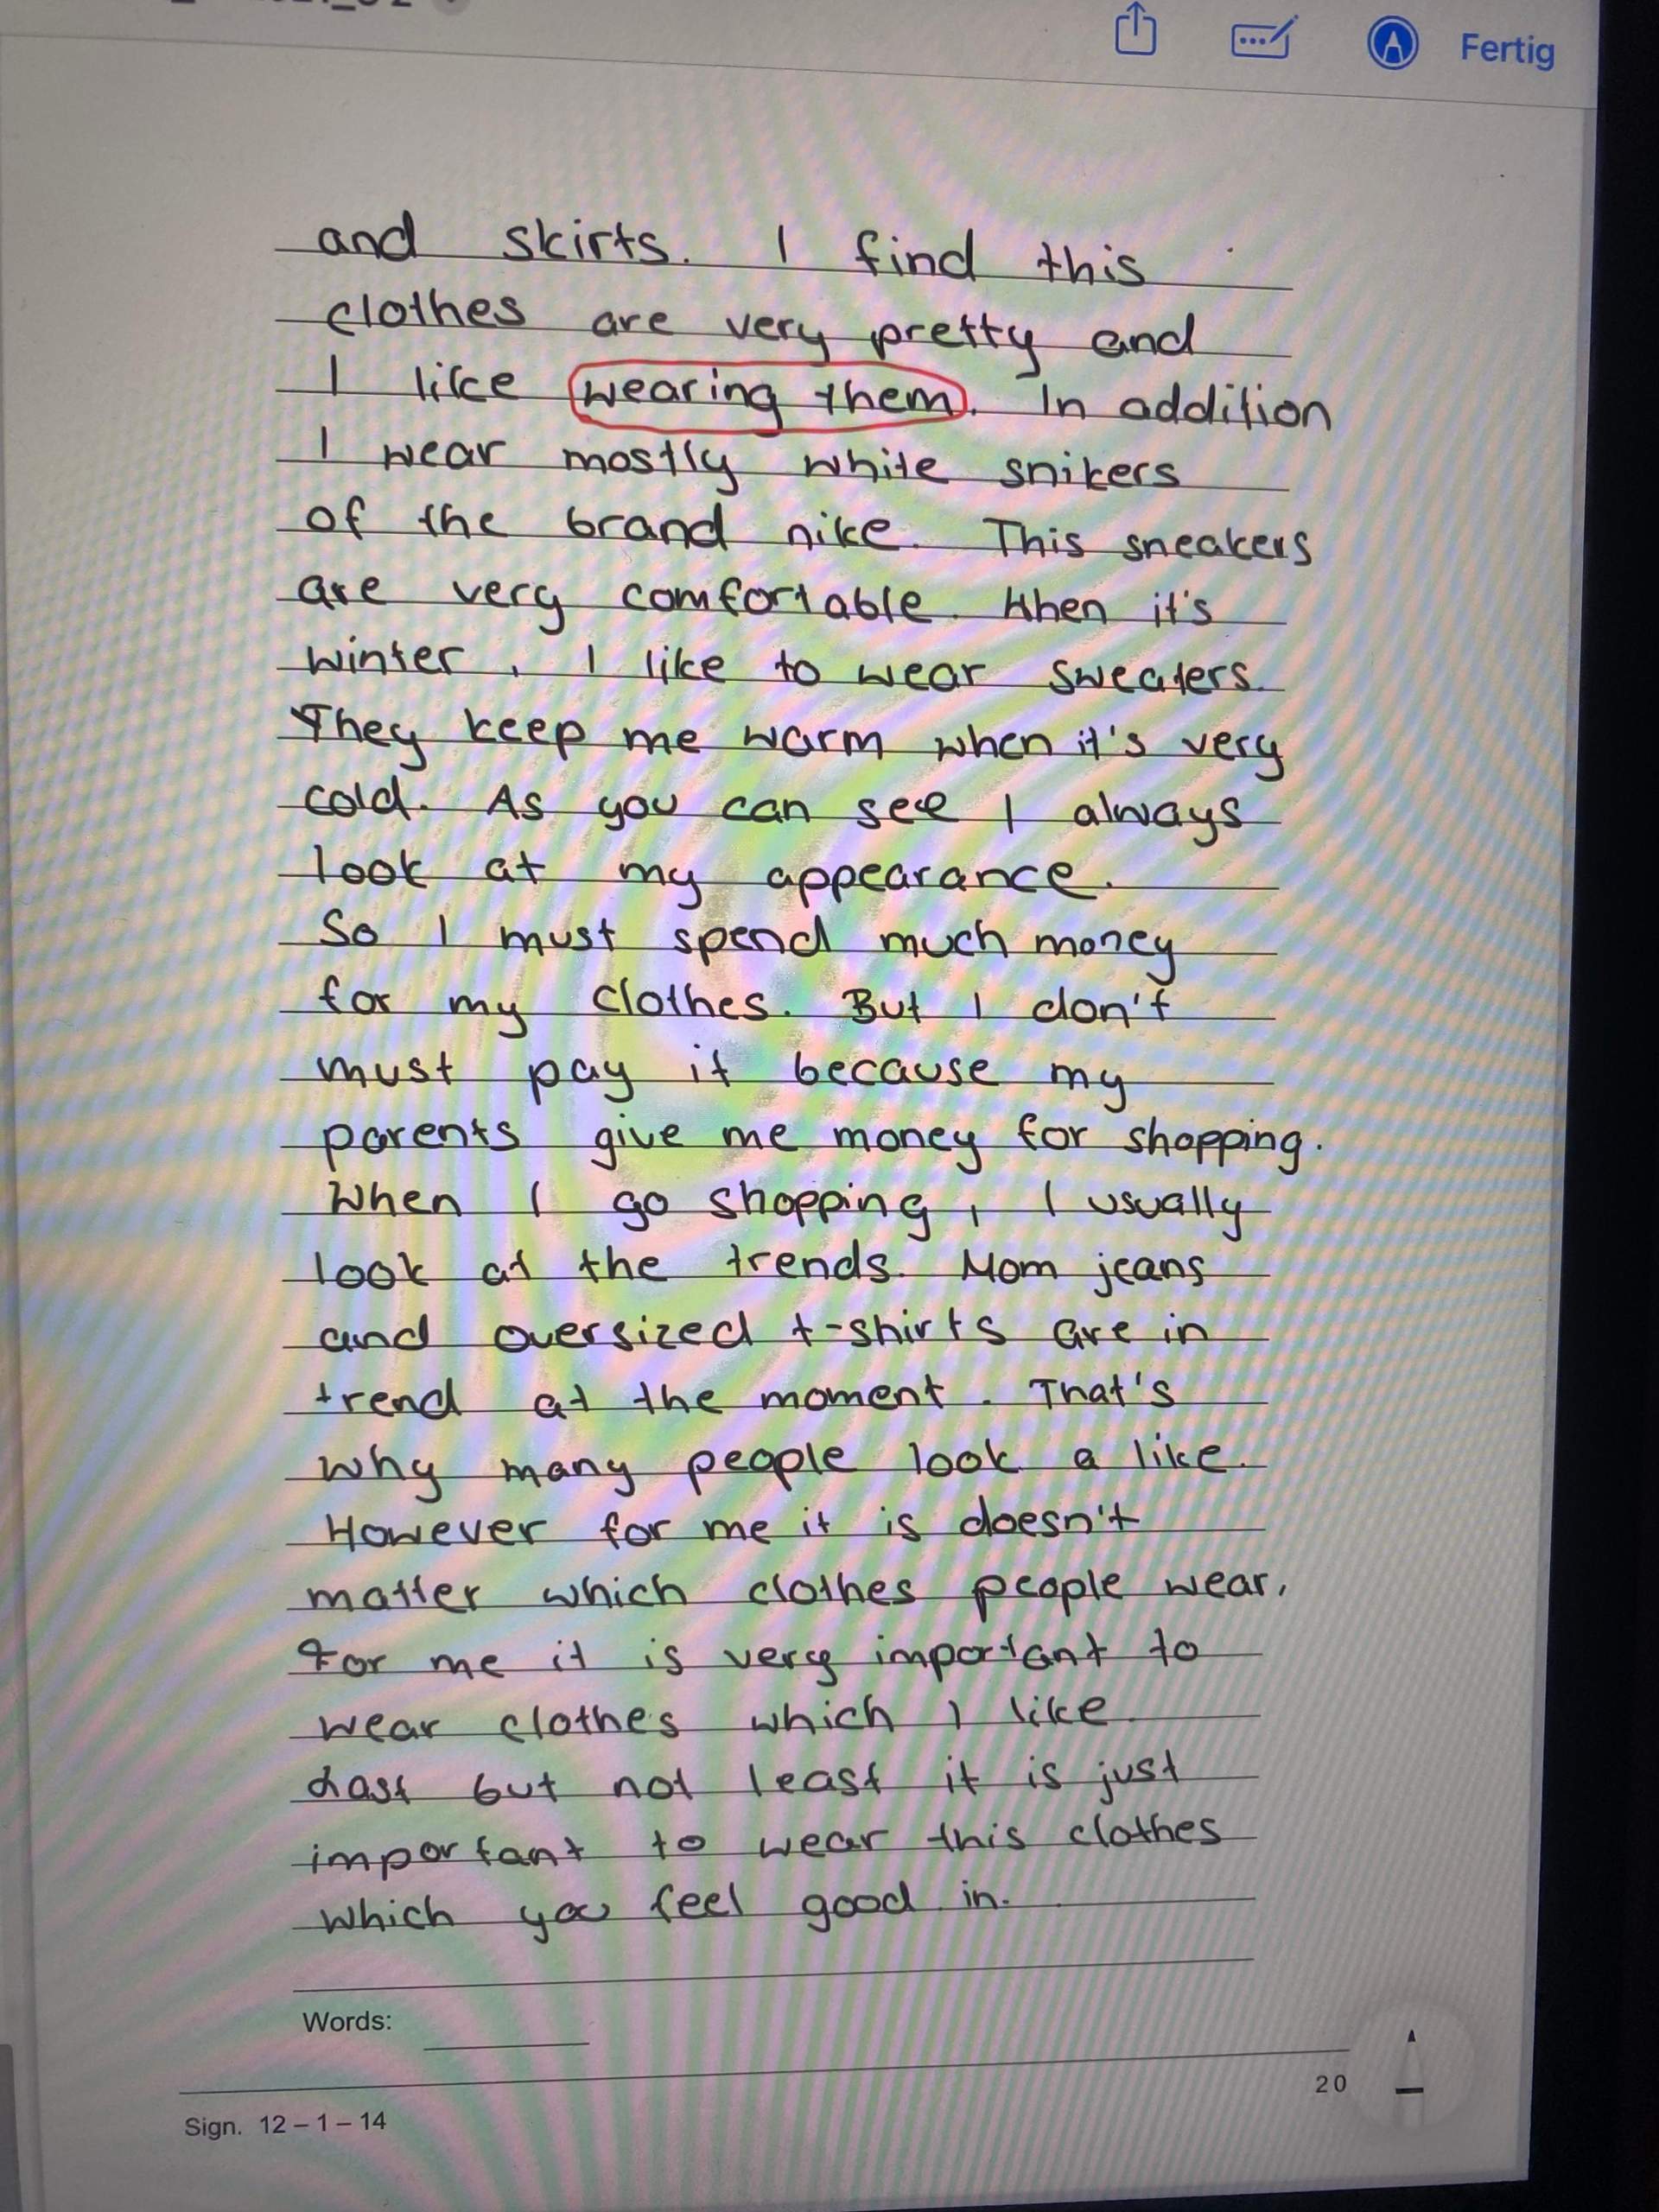 Fertig
and skirts. I find this
clothes are very pretty and
I like wearing them. In addition
I wear mostly white snikers
of the brand nike. This sneakers
are very comfortable. When it's
winter, I like to wear sweaters.
They keep me warm when it's very
cold. As you can see I always
look at my appearance.
So I must spend much money
for my clothes. But I don't
must pay it because my
parents give me money for shopping.
When I go shopping, I usually
look at the trends. Mom jeans
and oversized t-shirts are in
trend at the moment. That's
why many people look a like.
However for me it is doesn't
matter which clothes people wear.
For me it is very important to
wear clothes which I like.
Last but not least it is just
important to wear this clothes
which you feel good in.
Words:
20
Sign. 12 – 1 – 14